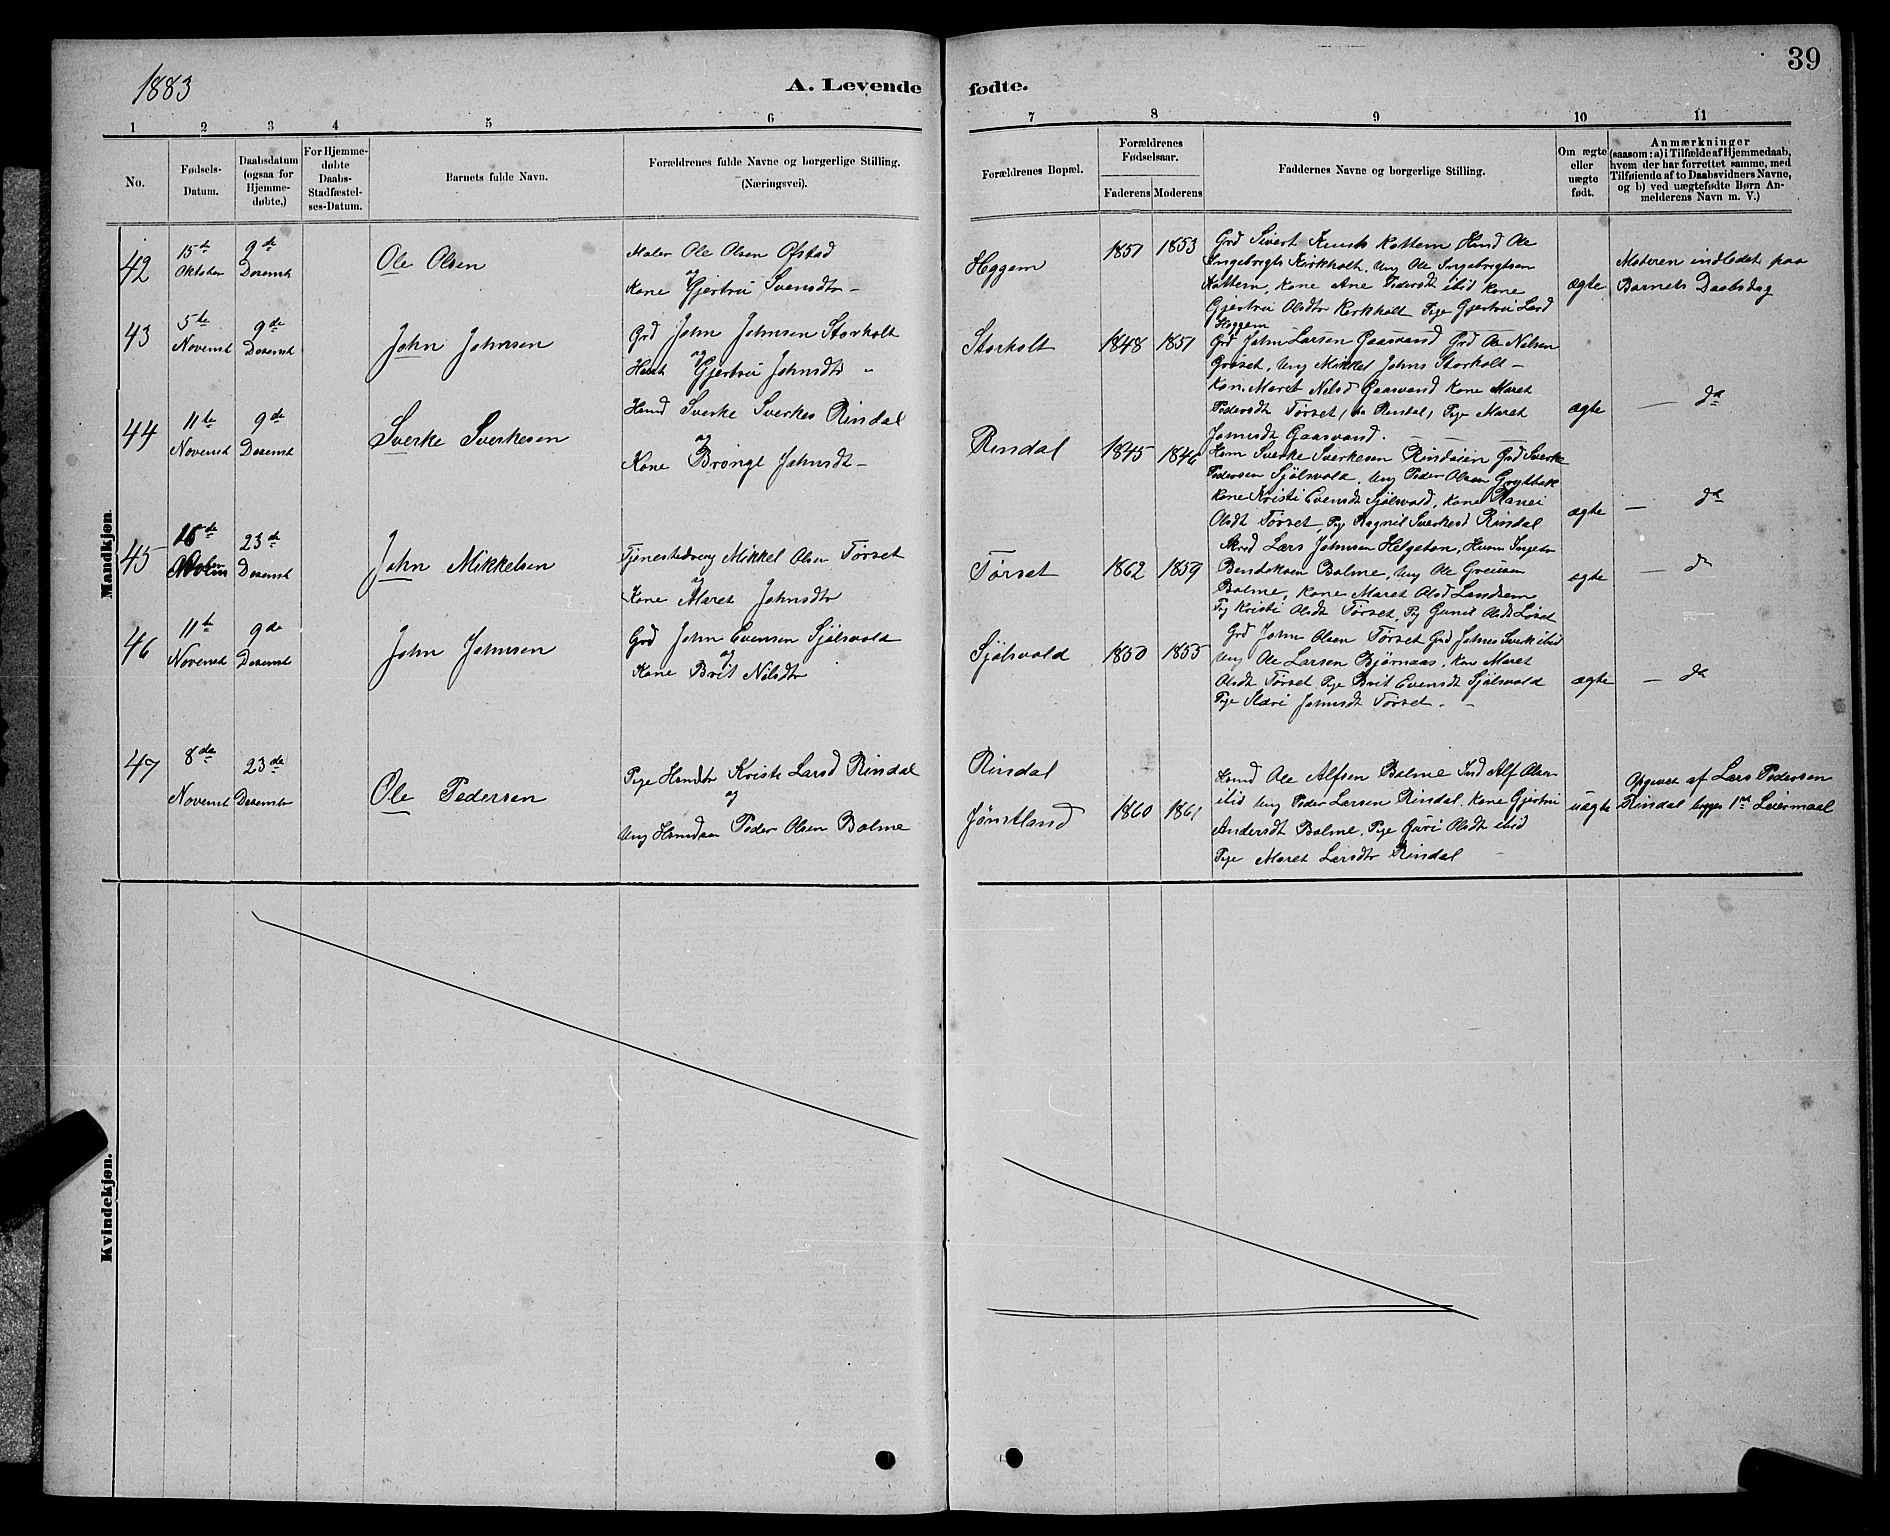 1883
A. Levende
fødte.
39
1 2 3 4 5 6 7 8 9 10 11
No.
Fødsels-
Datum.
Daabsdatum
(ogsaa for
Hjemme-
døbte.)
For Hjemme-
døbte
Daabs-
Stadfæstel-
ses-Datum.
Barnets fulde Navn.
Forældrenes fulde Navne og borgerlige Stilling.
(Næringsvei).
Forældrenes Bopæl.
Forældrenes
Fødselsaar.
Faderens Moderens
Faddernes Navne og borgerlige Stilling.
Om ægte
eller
uægte
født.
Anmærkninger
(saasom: a) i Tilfælde af Hjemmedaab,
hvem der har forrettet samme, med
Tilføiende af to Daabsvidners Navne,
og b) ved uægtefødte Børn An-
melderens Navn m. V.)
Mandkjøn.
42
15de
Oktober
9de
Desembr
Ole Olsen
Maler Ole Olsen Øfstad
og
Kone Gjertrui Svensdtr
Heggem
1851 1853
Grd Sivert Knuts Kattem Hmd Ole
Ingebrigts Kirkholt, Ung Ole Ingebrigtsen
Kattem, Kone Ane Pedersdt ibid Kone
Gjertrui Olsdtr Kirkholt Pige Gjertrui Larsd
Heggem
ægte
Moderen indledet paa
Barnets Daabsdag
43
5te
Novembr
9de
Desembr
John Johnsen
Grd John Johnsen Storholt
og
Gjertrui Johnsdtr
Storholt
1848 1851
Grd John Larsen Gaasvand Grd Ole Nilsen
Grøset, Ung Mikkel Johns Storholt
Kon. Maret Nilsd Gaasvand Kone Maret
Pedersdt Tørset, Pige Maret
Johnsdt Gaasvand.
ægte
— do
44
11te
Novembr
9de
Desembr
Sverke Sverkesen
Hmd Sverke Sverkes Rindal
og
Kone Brönge Johnsdt
Rindal
1845 1846
Hmn Sverke Sverkesen Rindalen Grd Sverke
Pedersen Sjølsvold, Ung Peder Olsen Gryttbak
Kone Kristi Evensdt Sjølsvold, Kone
Olsdt Tørset, Pig Ragnil Sverkesd Rindal
ægte
— do
45
15de
23de
Desembr
John Mikkelsen
Tjenestedreng Mikkel Olsen Tørset
og
Kone Maret Johnsdtr
Tørset
1862 1859
Lars Johnsen Helgeton,
Bendiksen Bolme, Ung Ole
Bolme, Kone Maret Olsd Landsem
Pig Kristi Olsdt Tørset, Pig Gunil Olsdt Løset
ægte
— do
46
11te
Novembr
9de
Desembr
John Johnsen
Grd John Evensen Sjølsvold
og
Kone Brit Nilsdtr
Sjølsvold
1850 1855
Grd John Olsen Tørset Grd Johnes Sverk ibid
Ung Ole Larsen Bjørnaas, Kone Maret
Olsdt Tørset Pige Brit Evensdt Sjølsvold
Pige Kari Johnsdt Tørset.
ægte
— do
47
8de
Novembr
23de
Desembr
Ole Pedersen
Pige Hmdtr Kristi Larsd Rindal
og
Ung Hmdsøn Peder Olsen Bolme
Rindal
Jønstland
1860 1861
Hmd Ole Alfsen Bolme Ind Alf Olsen
ibid Ung Peder Larsen Rindal, Kone Gjertrui
Andersdt Bolme, Pige Guri Olsdt ibid
Pige Maret Larsdtr Rindal
uægte
Opgivet af Lars Pedersen
Rindal begges 1ste Leiermaal
Kvindekjøn.